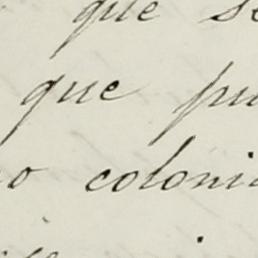 que se
que pu
no coloni